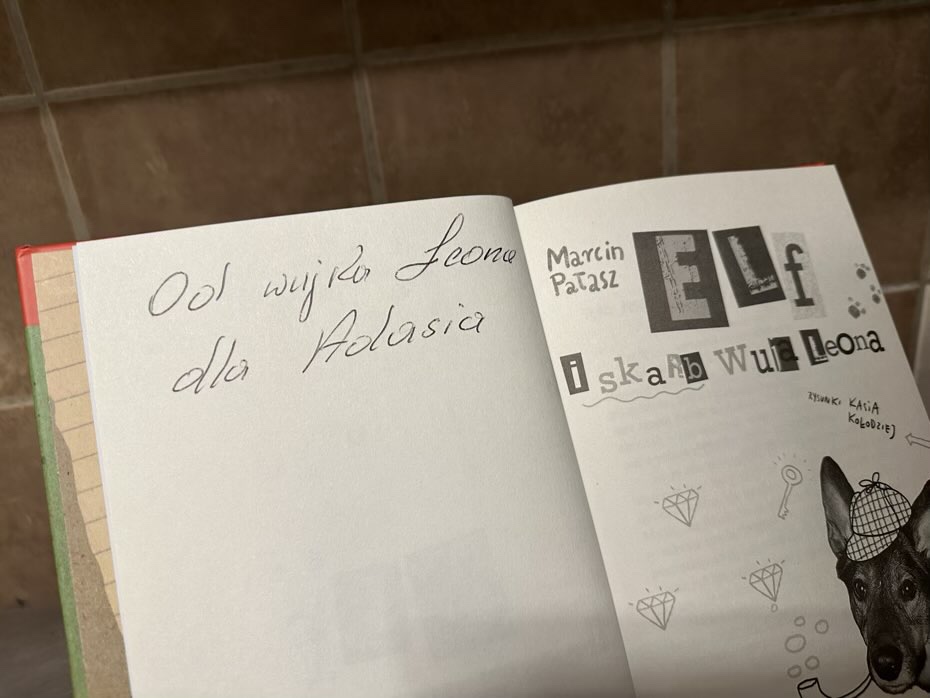 Od wujka Leona
dla Adasia
Marcin
Pałasz
ELf
i skarb Wuja Leona
RYSUNKI KASIA
KOŁODZIEJ